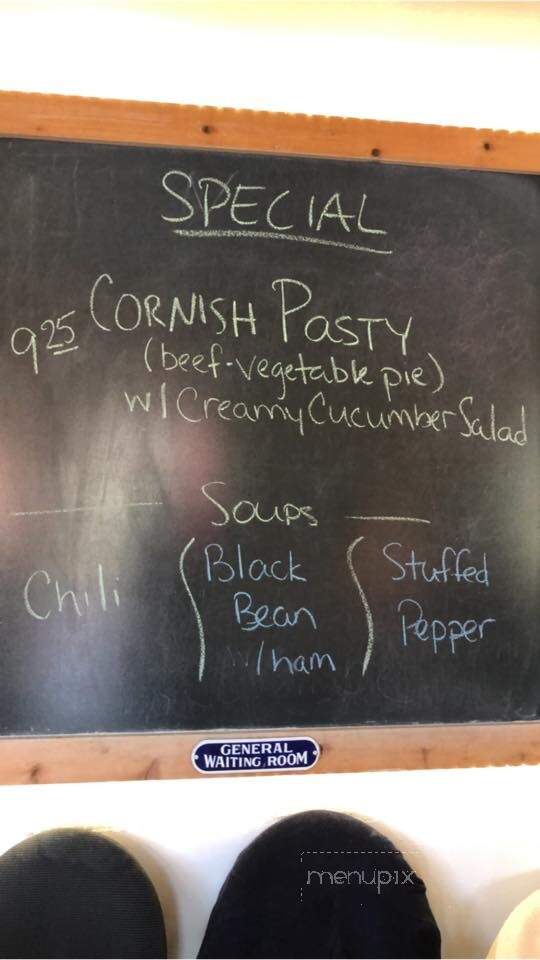 SPECIAL
9 25 CORNISH PASTY
(beef-vegetable pie)
w/ Creamy Cucumber Salad
Soups
Chili
Black
Bean
w/ham
Stuffed
Pepper
GENERAL
WAITING ROOM
menupix